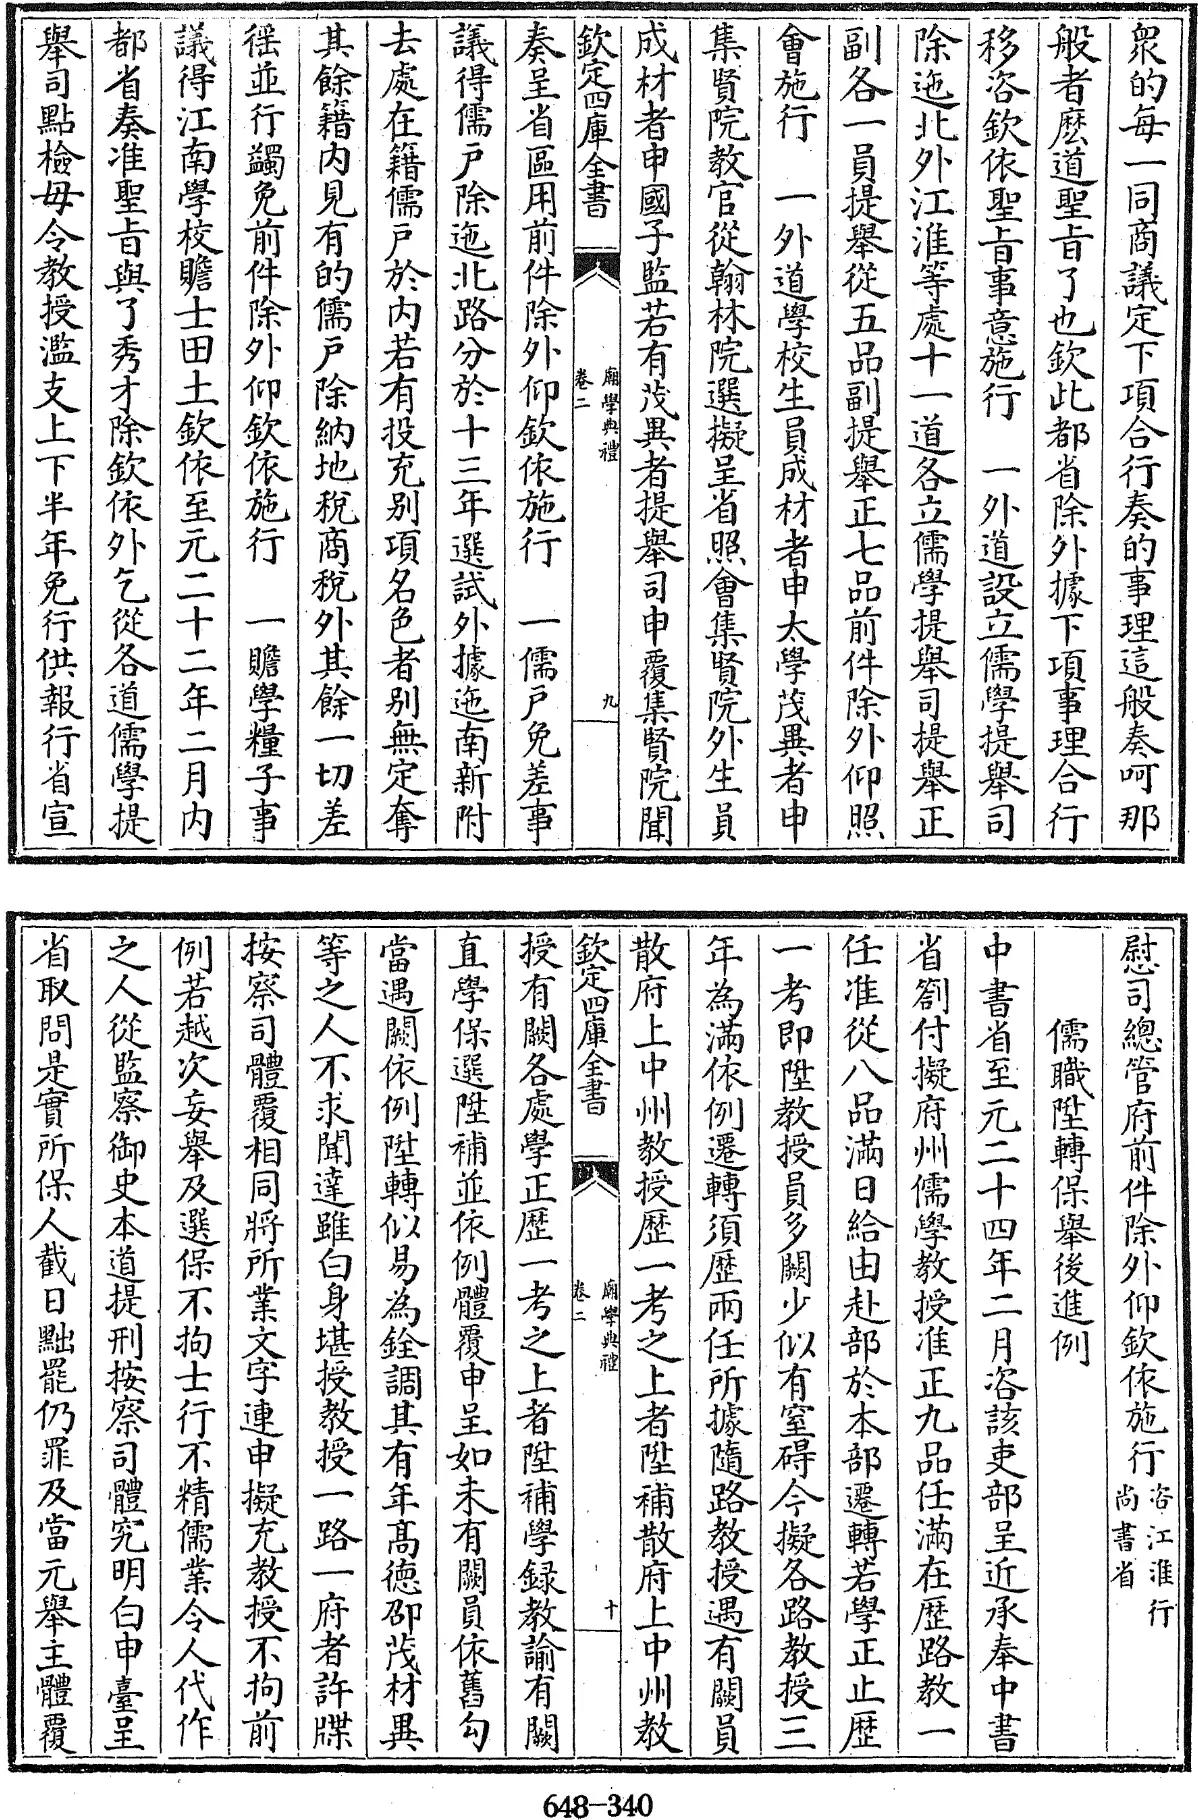 衆的每一同商議定下項合行奏的事理這般奏呵那
般者麽道聖旨了也欽此都省除外據下項事理合行
移咨欽依聖旨事意施行　一外道設立儒學提舉司
除迤北外江淮等處十一道各立儒學提舉司提舉正
副各一員提舉從五品副提舉正七品前件除外仰照
會施行　一外道學校生員成材者申太學茂異者申
集賢院教官從翰林院選擬呈省照會集賢院外生員
成材者申國子監若有茂異者提舉司申覆集賢院聞
欽定四庫全書
廟學典禮
卷二
九
奏呈省區用前件除外仰欽依施行　一儒户免差事
議得儒户除迤北路分於十三年選試外據迤南新附
去處在籍儒户於内若有投充别項名色者别無定奪
其餘籍内見有的儒户除納地稅商稅外其餘一切差
徭並行蠲免前件除外仰欽依施行　一贍學糧子事
議得江南學校贍士田土欽依至元二十二年二月内
都省奏准聖旨與了秀才除欽依外乞從各道儒學提
舉司點檢毋令教授濫支上下半年免行供報行省宣
慰司總管府前件除外仰欽依施行咨江淮行
尚書省
儒職陞轉保舉後進例
中書省至元二十四年二月咨該吏部呈近承奉中書
省劄付擬府州儒學教授准正九品任滿在歴路教一
任准從八品滿日給由赴部於本部遷轉若學正止歴
一考即陞教授員多闕少似有窒碍今擬各路教授三
年為滿依例遷轉須歴兩任所據隨路教授遇有闕員
散府上中州教授歴一考之上者陞補散府上中州教
欽定四庫全書
廟學典禮
卷二
十
授有闕各處學正歴一考之上者陞補學録教諭有闕
直學保選陞補並依例體覆申呈如未有闕員依舊勾
當遇闕依例陞轉似易為銓調其有年髙德卲茂材異
等之人不求聞達雖白身堪授教授一路一府者許牒
按察司體覆相同將所業文字連申擬充教授不拘前
例若越次妄舉及選保不拘士行不精儒業令人代作
之人從監察御史本道提刑按察司體究明白申臺呈
省取問是實所保人截日黜罷仍罪及當元舉主體覆
648-340